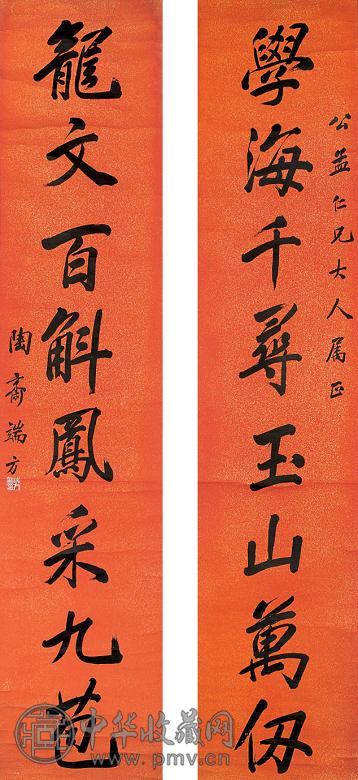 公益仁兄大人属正
學海千尋玉山萬仞
龍文百斛鳳采九苞
陶齋端方
中华收藏网
www.pmv.cn